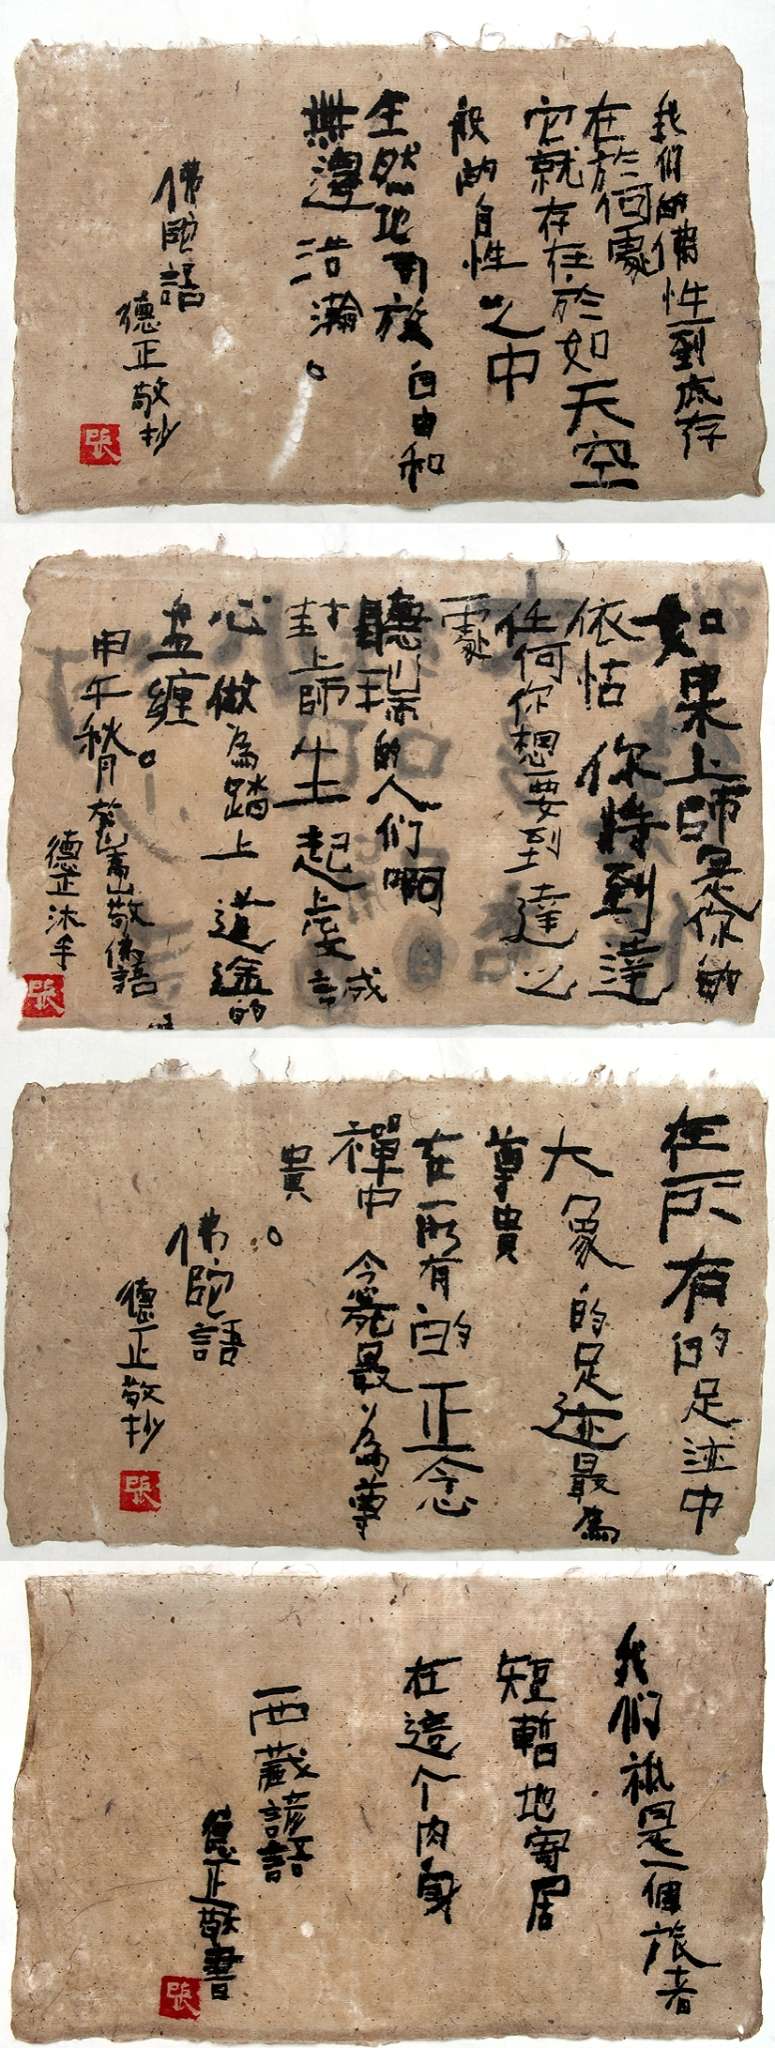 我们的佛性到底存
在於何處
它就存在於如天空
般的自性之中
全然地開放自由和
無邊浩瀚。
佛陀語
德正敬抄
張
如果上師是你的
依怙你將到達
任何你想要到達之
處
聽聞的人们啊
對上師生起虔誠
心做為踏上道途的
盘缠。
甲午秋月
德正沐手
張
在所有的足迹中
大象的足迹最為
尊貴
在所有的正念
禪中念死最為尊
貴。
佛陀語
德正敬抄
張
我们祇是一個旅者
短暫地寄居
在這个肉身
西藏諺語
德正敬書
張